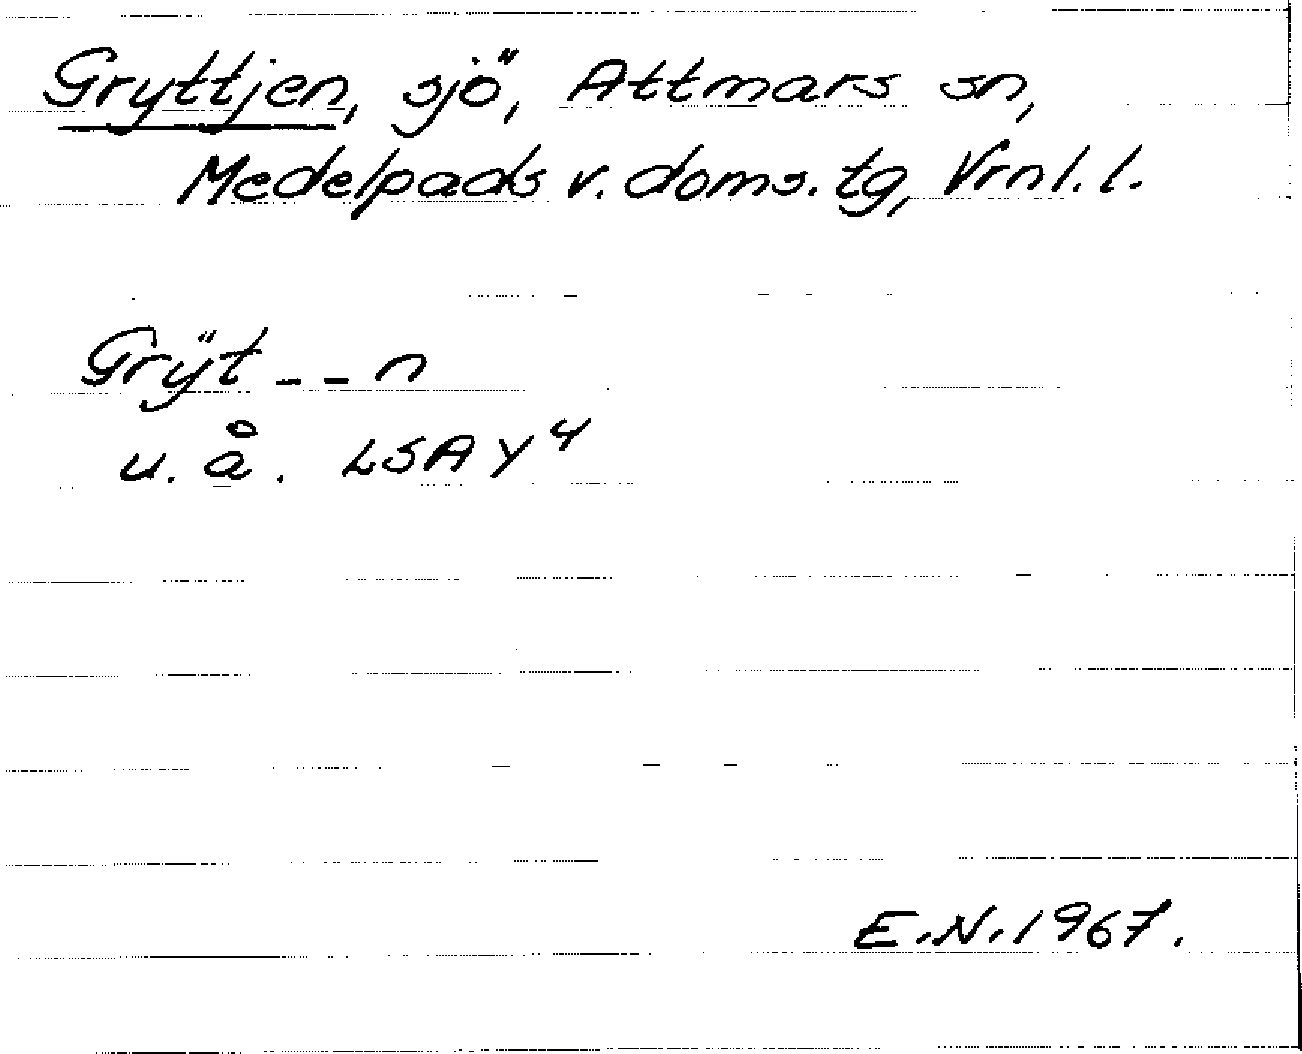 Gryttjen, sjö, Attmars sn,
Medelpads v. doms. tg, Vrnl. l.
Grÿt - - n
u. å. LSA Y 4
E.N. 1967.